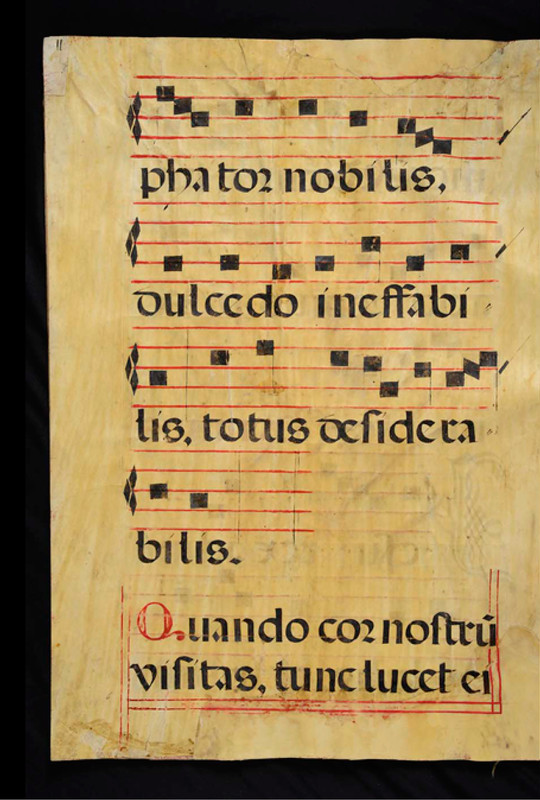 pha tor nobilis,
dulcedo ineffabi
lis, totus desidera
bilis.
Quando cor nostrū
visitas, tunc lucet ei